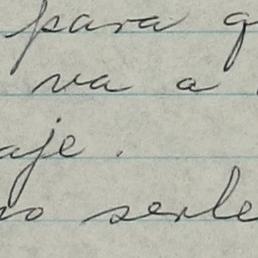 para q
va a
aje.
no serle